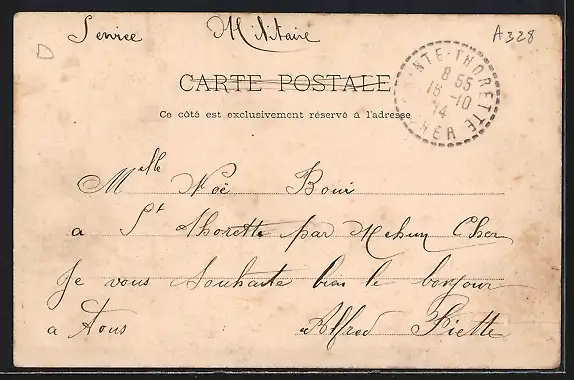 Service Militaire
A328
D
CARTE POSTALE
Ce côté est exclusivement réservé à l'adresse
SAINTE-THORETTE
8 55
16 -10
14
CHER
Melle Noë Boui
a St Thorette par Mehun Cher
Je vous souhaite bien le bonjour
a Tous Alfred Piette